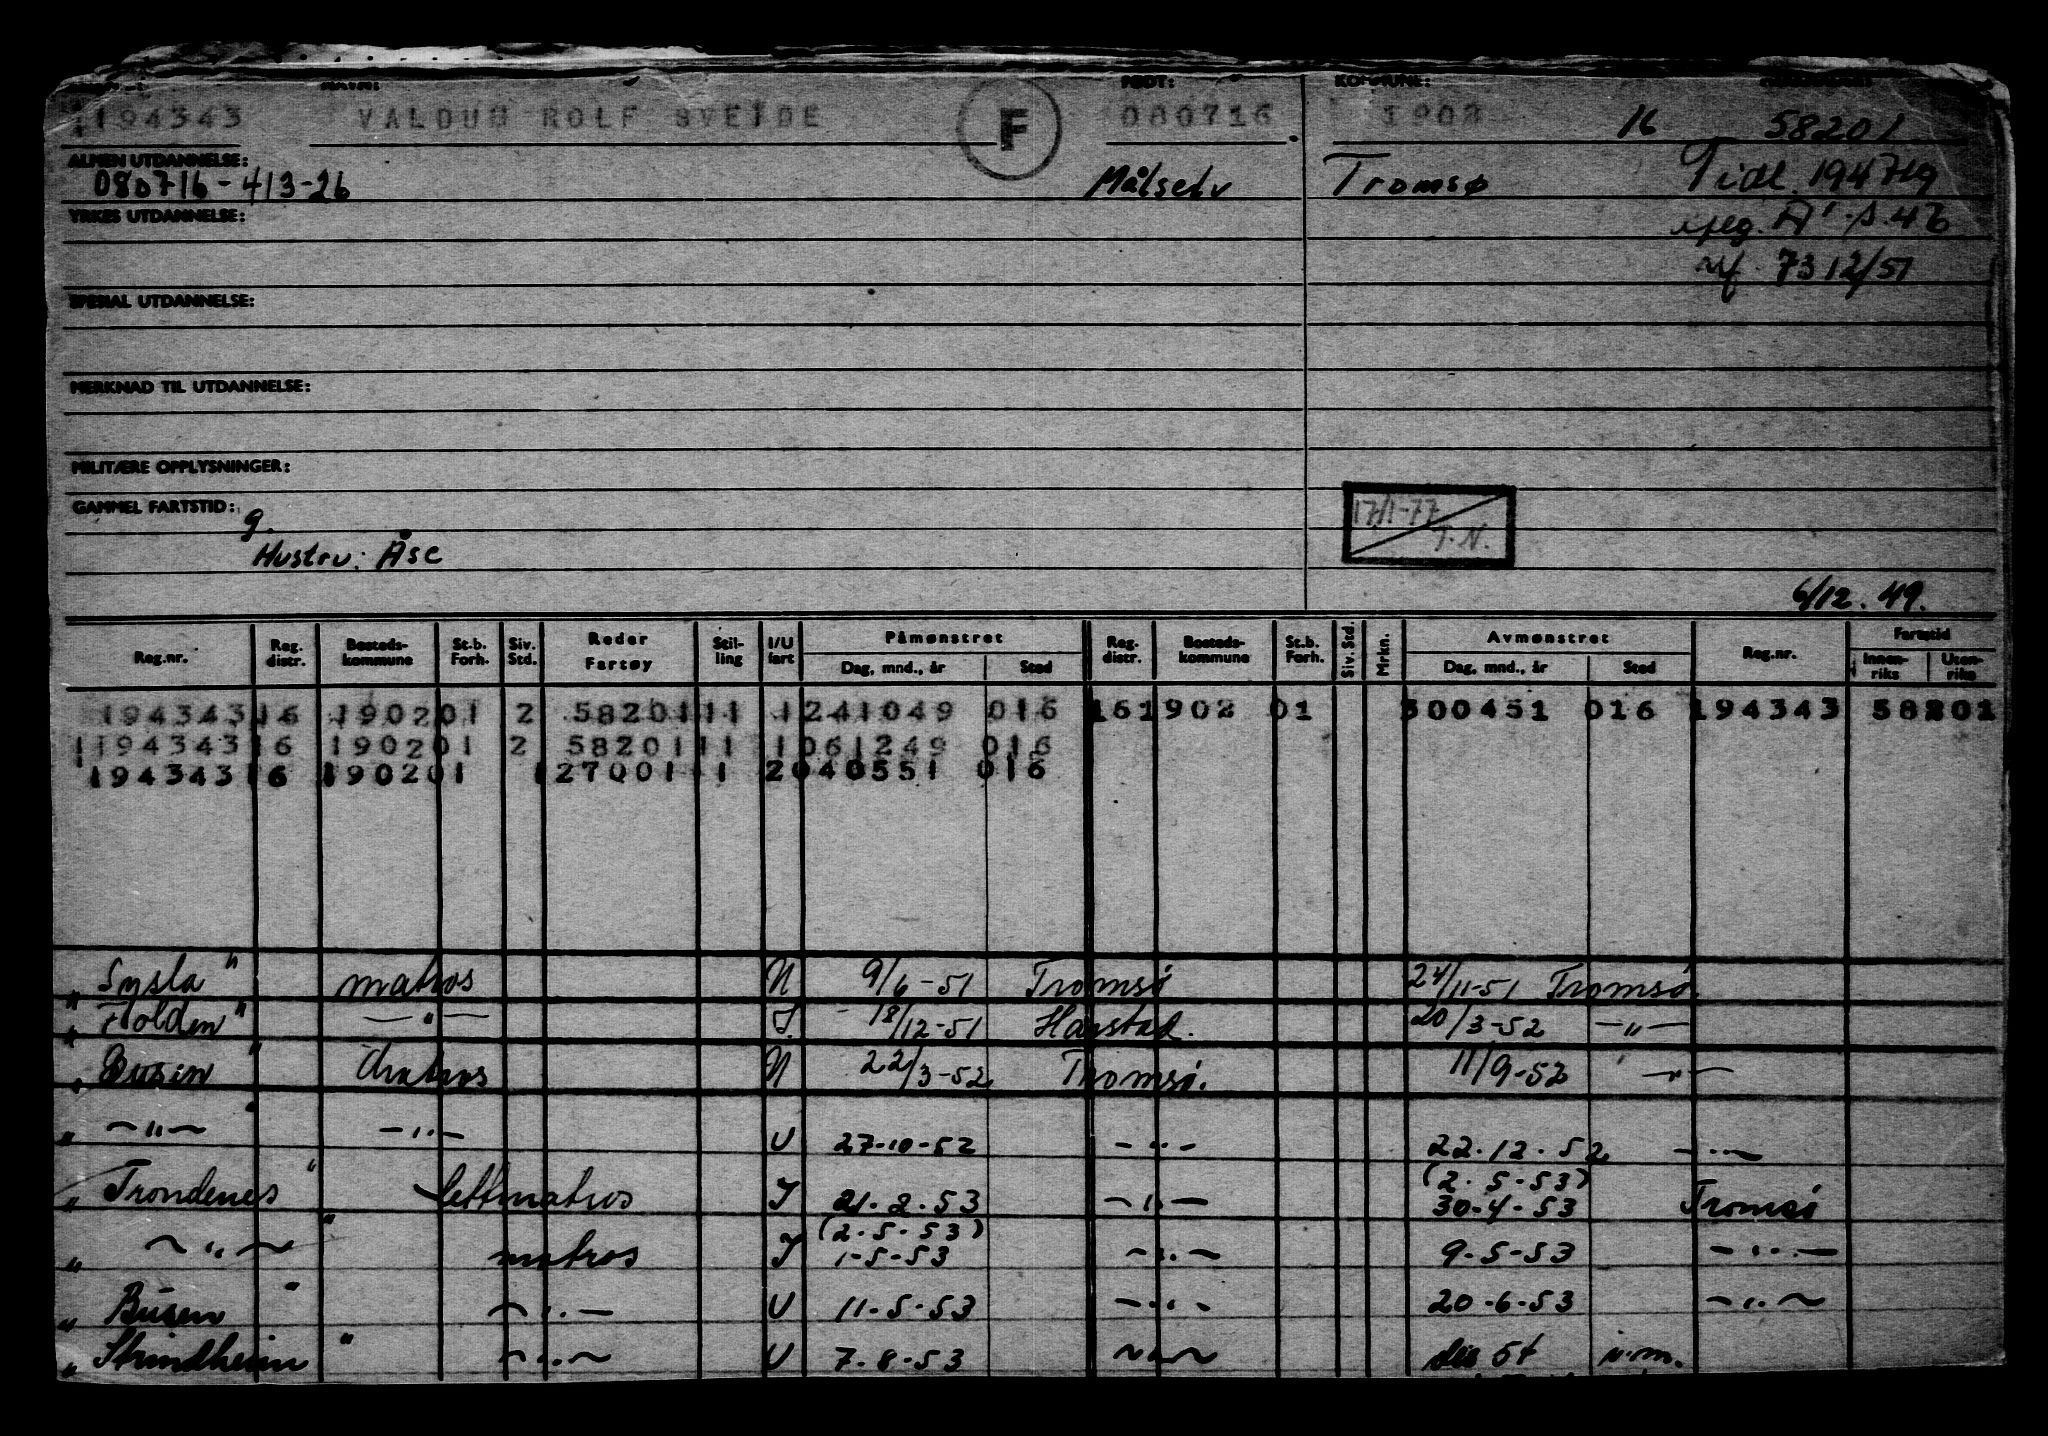 NAVN: FØDT: KOMMUNE:
194343 VALDUM ROLF SVEIDE F 080716 1902 16 58201
ALMEN UTDANNELSE:
080716-413-26 Målselv Tromsø Tidl. 194749
YRKES UTDANNELSE:
73 12/51
SPESIAL UTDANNELSE:
MERKNAD TIL UTDANNELSE:
MILITÆRE OPPLYSNINGER:
GAMMEL FARTSTID: g.
17/1-77 T.N.
Hustru: Åse
6/12. 49.
Reg.nr. Reg. distr. Bosteds-kommune St.b. Forh. Siv. Std. Reder Fartøy Stil-ling I/U fart Påmønstret Dag, mnd., år Sted Reg. distr. Bosteds-kommune St.b. Forh. Siv. Std. Mrkn. Avmønstret Dag, mnd., år Sted Reg.nr. Fartstid Innen-riks Uten-riks
194343 16 1902 01 2 58201 11 1 241049 016 16 1902 01 300451 016 194343 58201
194343 16 1902 01 2 58201 11 1 061249 016
194343 16 1902 01 127001 11 2 040551 016
„Sysla" matros U 9/6-51 Tromsø 24/11-51 Tromsø
„Folden" —"— I. 18/12-51 Harstad. 20/3-52 —"—
„Busen" Matros U 22/3-52 Tromsø. 11/9-52 —"—
„ —"— " —"— U 27-10-52 —"— 22.12.52 —"—
„Trondenes" lettmatros I 21.2.53 —"— (2.5-53) 30-4-53 Tromsø
„ —"— " matros I (2.5.53) 1-5-53 —"— 9.5-53 —"—
„Busen" —"— U 11.5-53 —"— 20.6-53 —"—
„Strindheim" —"— U 7.8-53 —"— des 54 n.m.